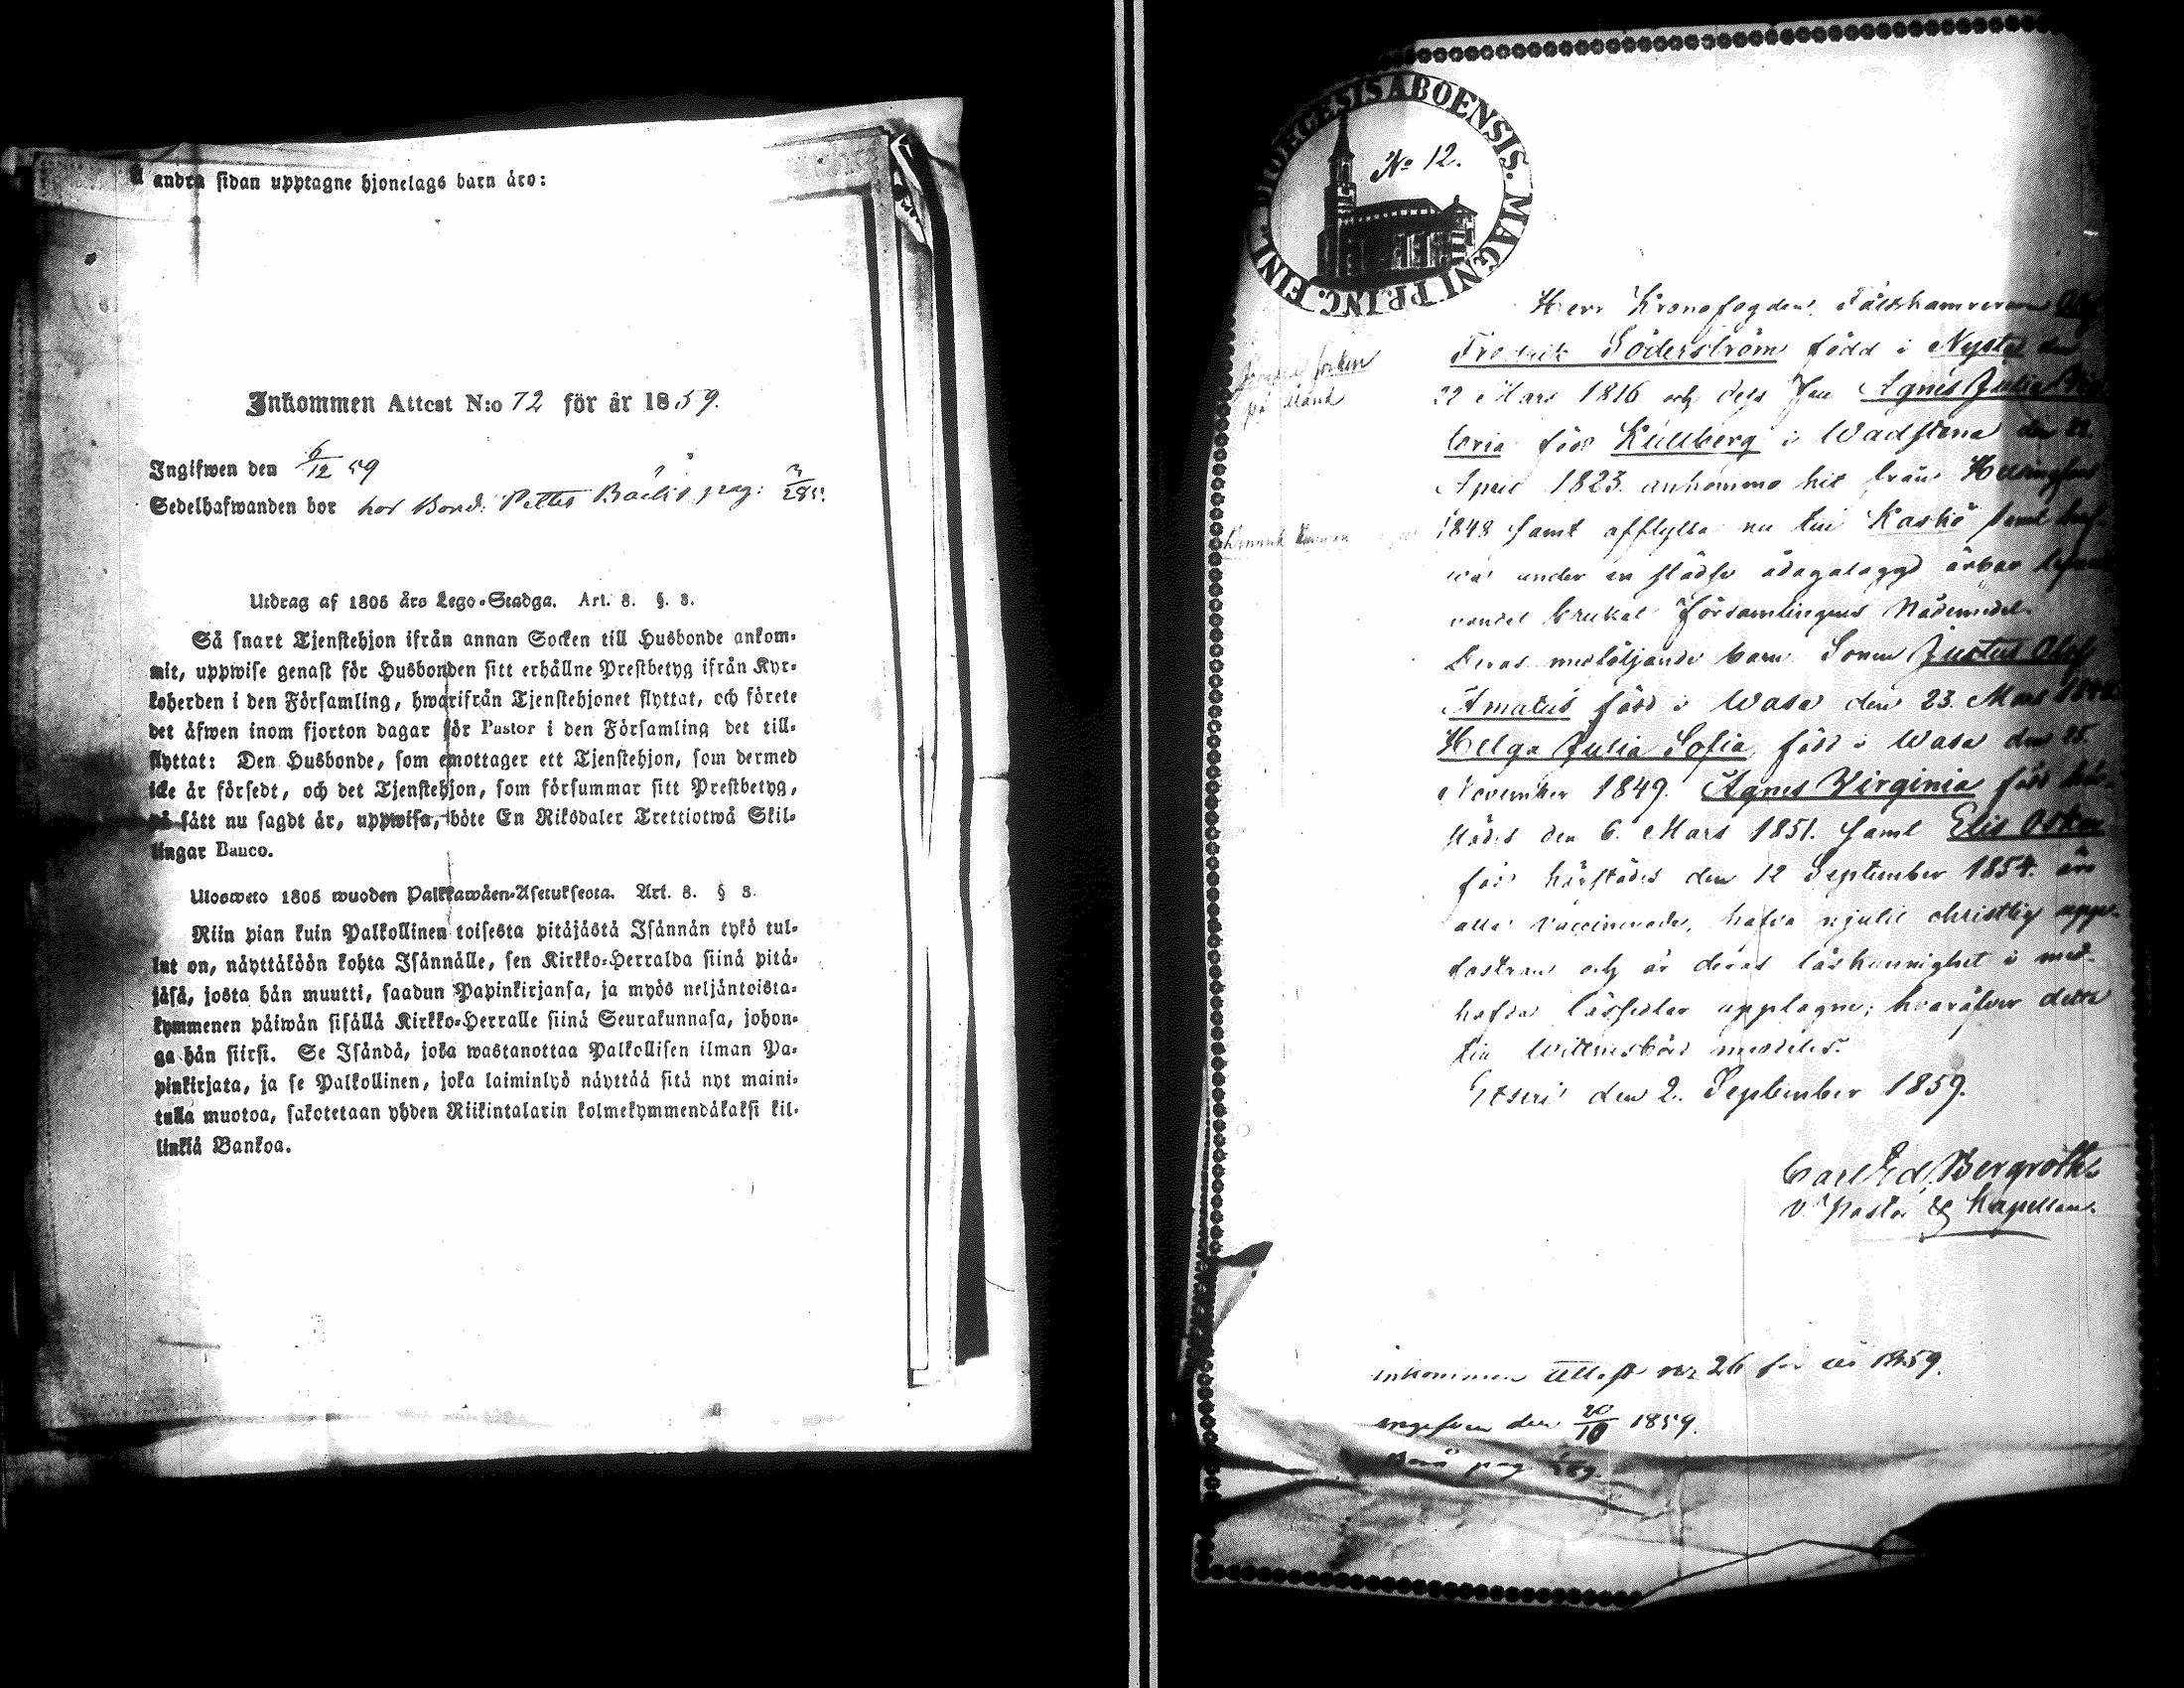 Å andra sidan upptagne hjonelags barn äro:
Inkommen Attest N:o 72 för år 1859.
Ingifwen den 6/12 59
Sedelhafwanden bor hos Bond. Petter pag: 285.
Utdrag af 1805 års Lego-Stadga. Art. 8. §. 8.
Så snart Tjenstehjon ifrån annan Socken till Husbonde ankom-
mit, uppwise genast för Husbonden sitt erhållne Prestbetyg ifrån Kyr-
koherden i den Församling, hwarifrån Tjenstehjonet flyttat, och förete
det äfwen inom fjorton dagar för Pastor i den Församling det till-
flyttat: Den Husbonde, som emottager ett Tjenstehjon, som dermed
icke är försedt, och det Tjenstehjon, som försummar sitt Prestbetyg,
på sätt nu sagdt är, uppwisa, böte En Riksdaler Trettiotwå Skil-
lingar Banco.
Ulosweto 1805 wuoden Palkkawäen-Asetuksesta. Art. 8. § 8.
Niin pian kuin Palkollinen toisesta pitäjästä Isännän tykö tul-
lut on, näyttäköön kohta Isännälle, sen Kirkko-Herralda siinä pitä-
jäsä, josta hän muutti, saadun Papinkirjansa, ja myös neljäntoista-
kymmenen päiwän sisällä Kirkko-Herralle siinä Seurakunnasa, johon-
ga hän siirsi. Se Isändä, joka wastanottaa Palkollisen ilman Pa-
pinkirjata, ja se Palkollinen, joka laiminlyö näyttää sitä nyt maini-
tulla muotoa, sakotetaan yhden Riikintalarin kolmekymmendäkaksi kil-
linkiä Bankoa.
DIOECESIS ABOENSIS. MAGNI PRINC. FINL.
No 12.
Herr Kronofogden, Fältkamreraren
Fredrik Söderström född i Nystad den
22 Mars 1816 och dess Fru Agnes Julia Vic
toria född Kullberg i Wadstena den 22.
April 1823. ankomne hit från Helsingfors
1848 samt afflytta nu till Kaskö samt haf
wa under en städse ådagalaggd ärbar lefnads
vandel brukat Församlingens Nådemedel.
Deras medföljande barn Sonen Justus Olof
Amatus född i Wasa den 23. Mars
Helga Julia Sofia född i Wasa den 25.
November 1849. Agnes Virginia född här-
städes den 6. Mars 1851. samt Elis Oskar
född härstädes den 12 September 1854. äro
alla vaccinerade, hafva njutit christlig upp-
fostran och är deras läskunnighet i med-
hafda lässedlar upptagne; hvaröfver detta
till Wittnesbörd meddelas.
Etseri den 2. September 1859.
Carl Ed. Bergroth
V. Pastor & Kapellan.
på Åland
inkommen Attest nr 26 för år 1859.
ingifven den 20/10 1859.
pag